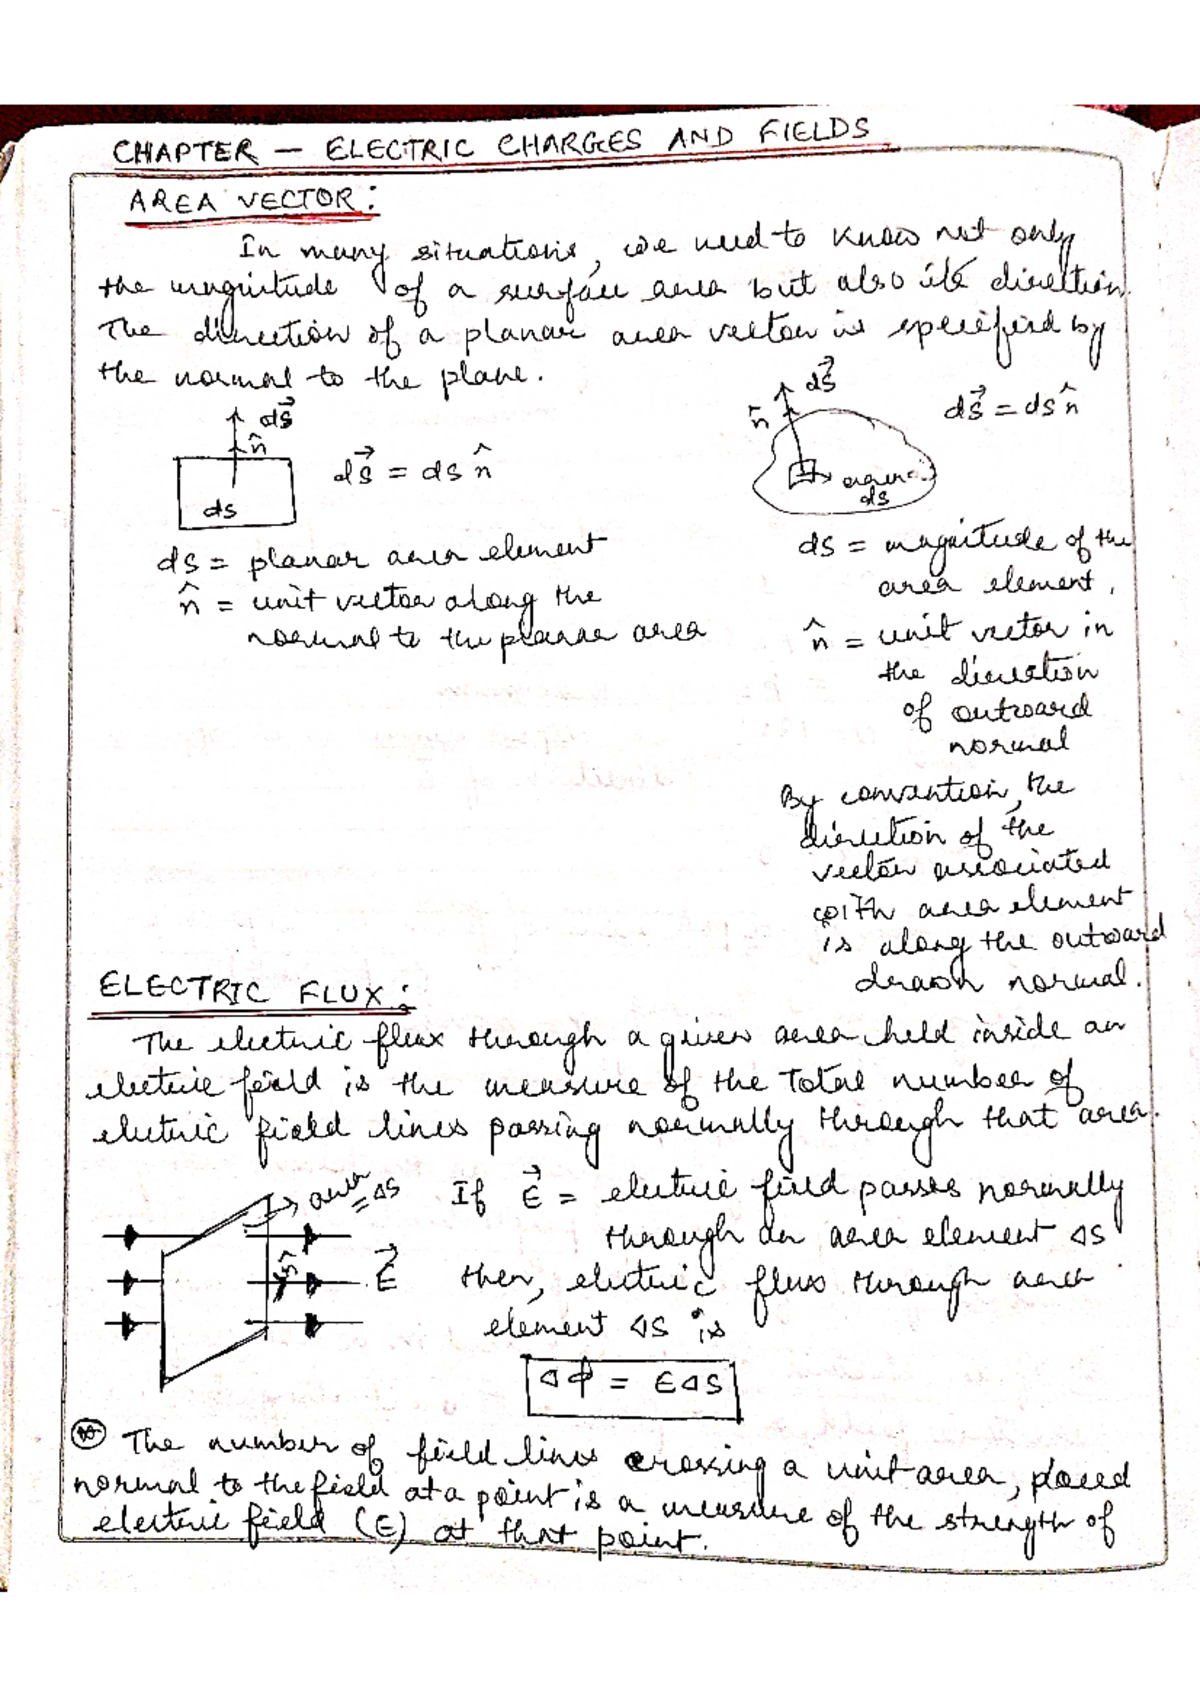 CHAPTER — ELECTRIC CHARGES AND FIELDS
AREA VECTOR:
In many situations, we need to know not only
the magnitude of a surface area but also its direction.
The direction of a planar area vector is specified by
the normal to the plane.
dS⃗
n̂
ds
dS⃗ = ds n̂
ds = planar area element
n̂ = unit vector along the
normal to the planar area
dS⃗
n̂
area
ds
dS⃗ = ds n̂
ds = magnitude of the
area element.
n̂ = unit vector in
the direction
of outward
normal
By convention, the
direction of the
vector associated
with area element
is along the outward
drawn normal.
ELECTRIC FLUX:
The electric flux through a given area held inside an
electric field is the measure of the total number of
electric field lines passing normally through that area.
area
= ΔS
E⃗
If E⃗ = electric field passes normally
through an area element ΔS
then, electric flux through area
element ΔS is
Δϕ = EΔS
The number of field lines crossing a unit area, placed
normal to the field at a point is a measure of the strength of
electric field (E) at that point.